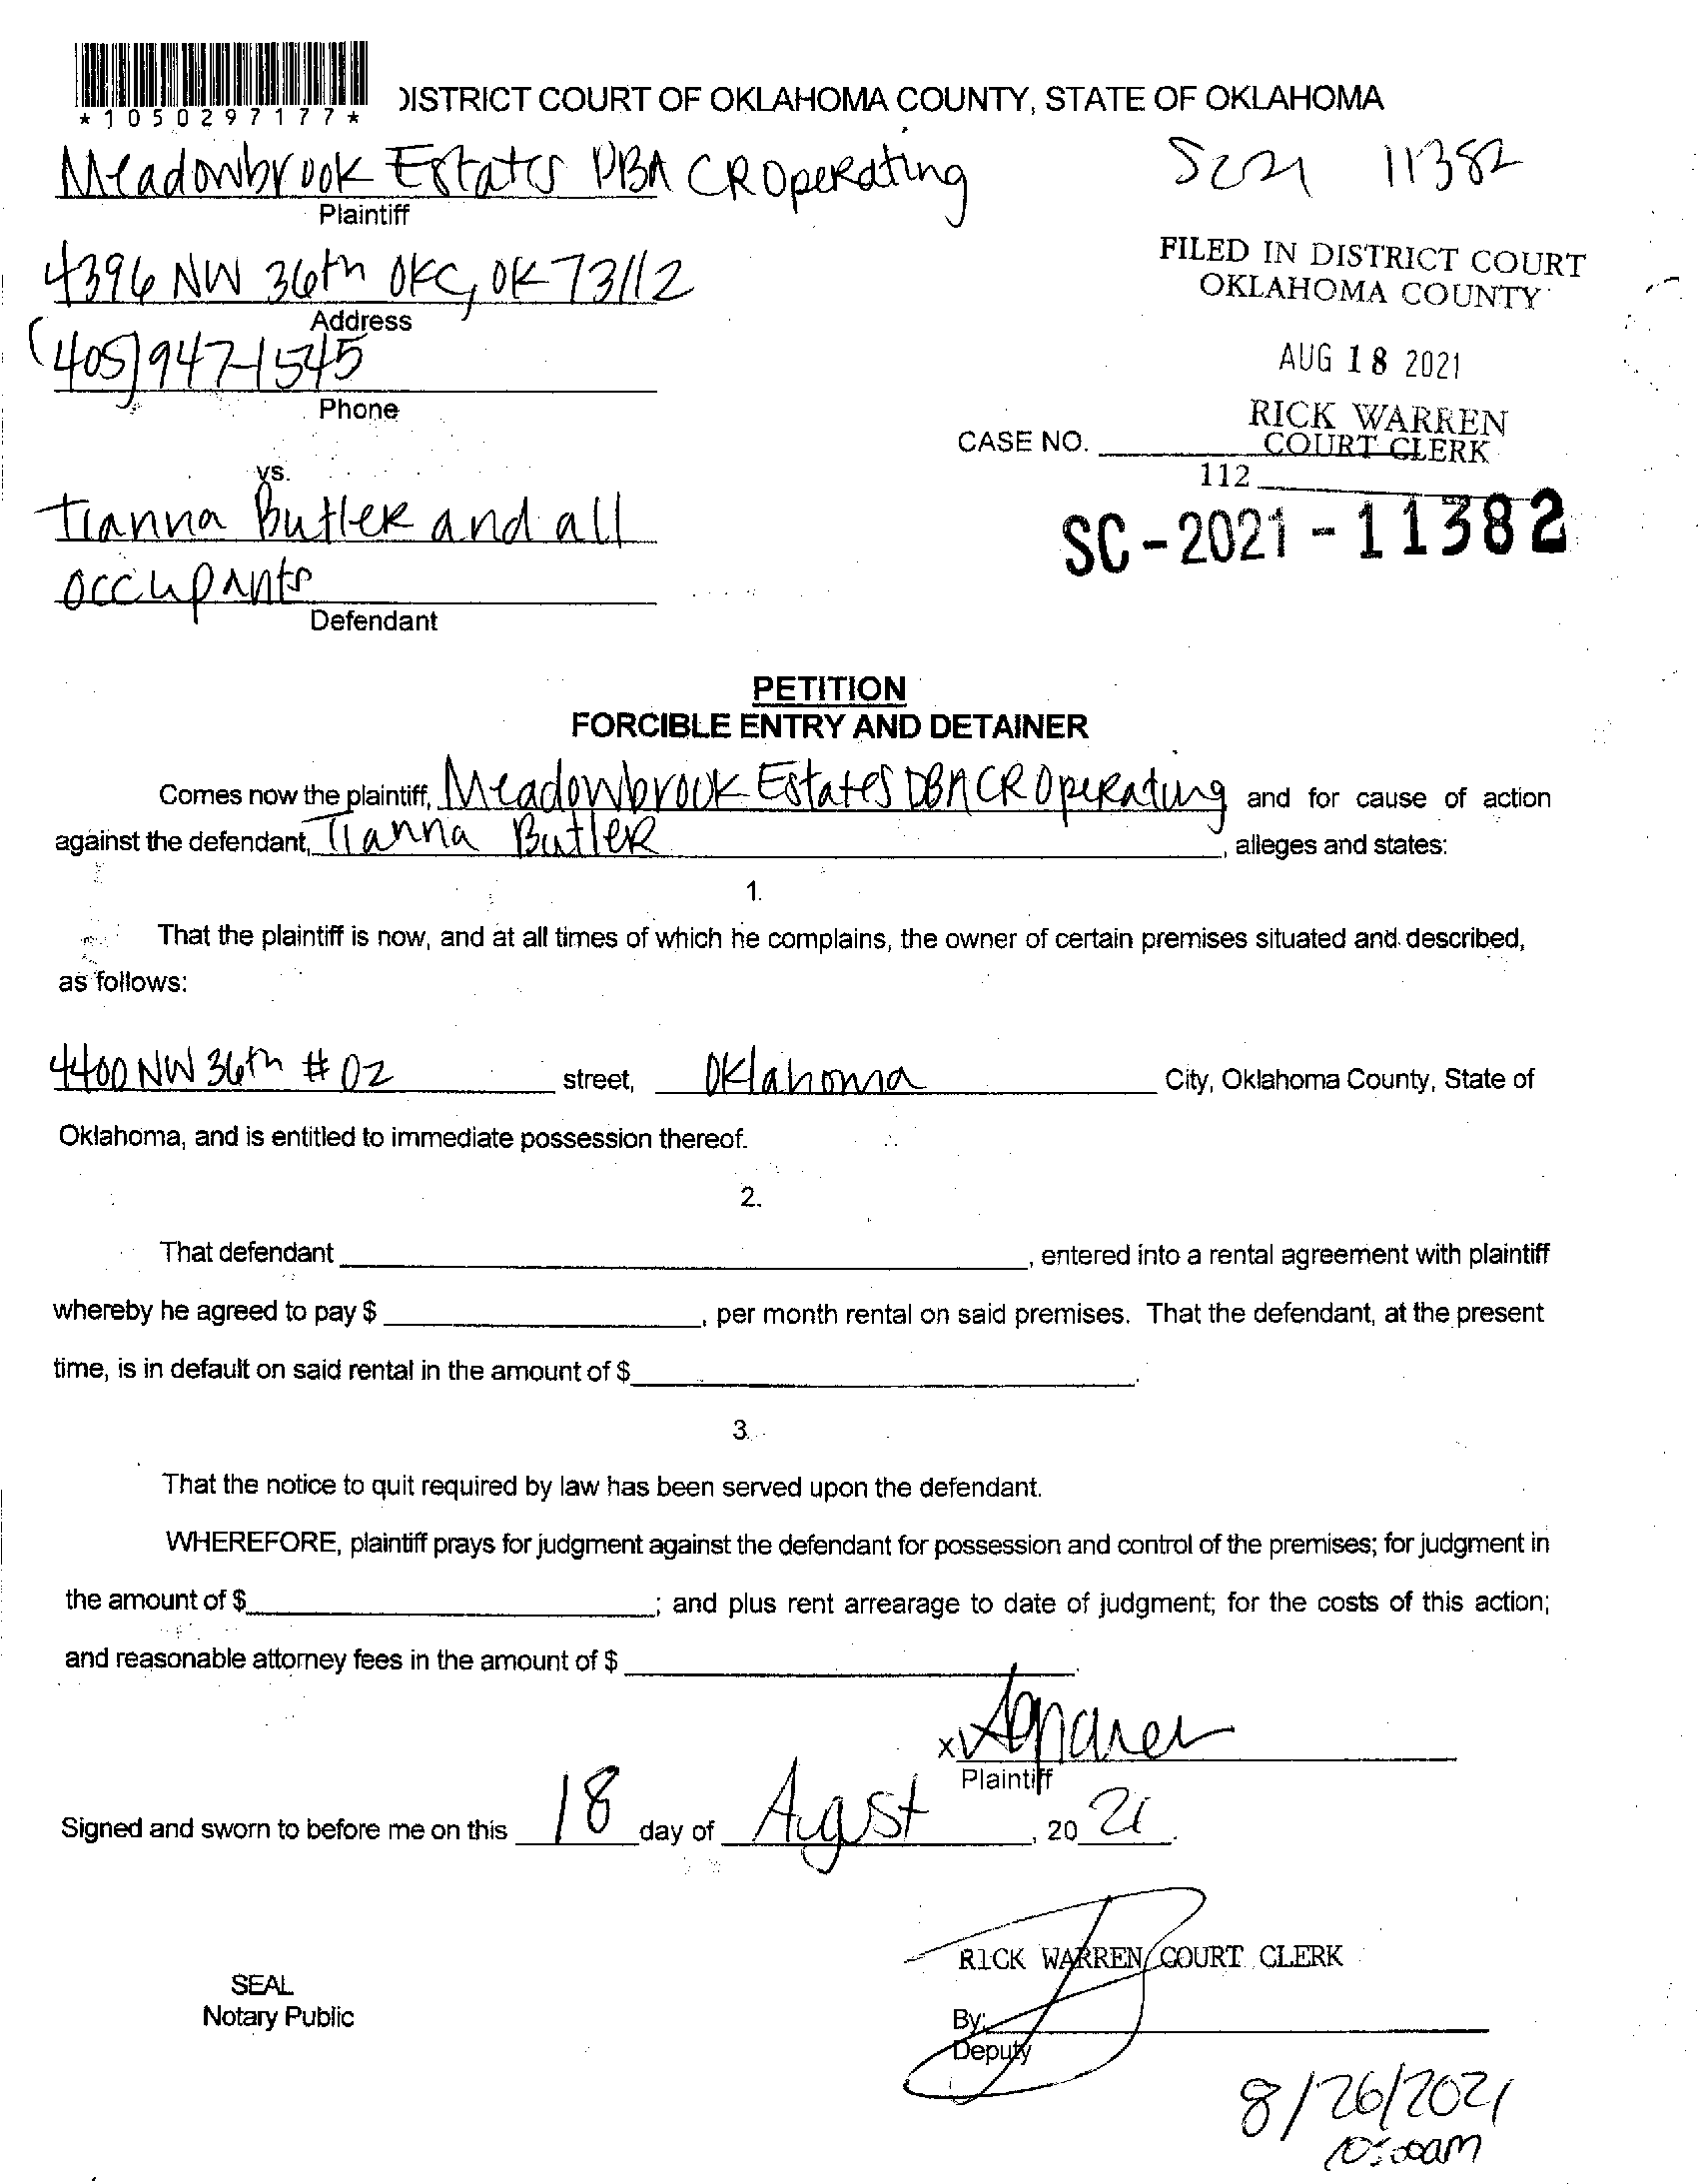 *1050297177*
DISTRICT COURT OF OKLAHOMA COUNTY, STATE OF OKLAHOMA
Meadowbrook Estates DBA CR Operating
Plaintiff
SC21 11382
4396 NW 36th OKC, OK 73112
Address
FILED IN DISTRICT COURT
OKLAHOMA COUNTY
(405) 947-1545
Phone
AUG 18 2021
RICK WARREN
COURT CLERK
CASE NO.
112
vs.
Tianna Butler and all
occupants
Defendant
SC-2021-11382
PETITION
FORCIBLE ENTRY AND DETAINER
Comes now the plaintiff, Meadowbrook Estates DBA CR Operating and for cause of action
against the defendant, Tianna Butler, alleges and states:
1.
That the plaintiff is now, and at all times of which he complains, the owner of certain premises situated and described,
as follows:
4400 NW 36th # 02 street, Oklahoma City, Oklahoma County, State of
Oklahoma, and is entitled to immediate possession thereof.
2.
That defendant , entered into a rental agreement with plaintiff
whereby he agreed to pay $ , per month rental on said premises. That the defendant, at the present
time, is in default on said rental in the amount of $ .
3.
That the notice to quit required by law has been served upon the defendant.
WHEREFORE, plaintiff prays for judgment against the defendant for possession and control of the premises; for judgment in
the amount of $ ; and plus rent arrearage to date of judgment; for the costs of this action;
and reasonable attorney fees in the amount of $ .
X
Plaintiff
Signed and sworn to before me on this 18 day of Augst, 20 21.
RICK WARREN COURT CLERK
SEAL
Notary Public
By:
Deputy
8/26/2021
10:00am